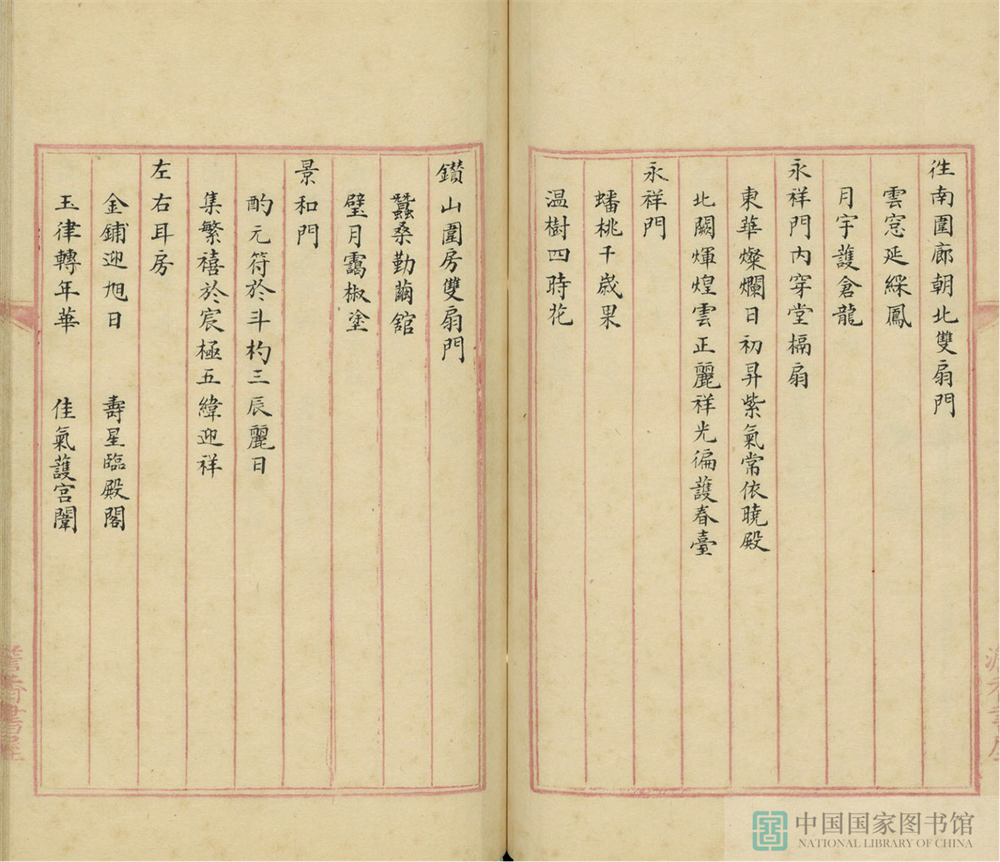 徃南圍廊朝北雙扇門
雲窓延綵鳳
月宇護倉龍
永祥門内穿堂槅扇
東華燦爛日初昇紫氣常依曉殿
北闕煇煌雲正麗祥光徧護春臺
永祥門
蟠桃千歲果
温樹四時花
鑽山圍房雙扇門
蠶桑勤繭舘
璧月靄椒塗
景和門
酌元符於斗杓三辰麗日
集繁禧於宸極五緯迎祥
左右耳房
金鋪迎旭日　壽星臨殿閣
玉律轉年華　佳氣護宫闈
中国国家图书馆
NATIONAL LIBRARY OF CHINA